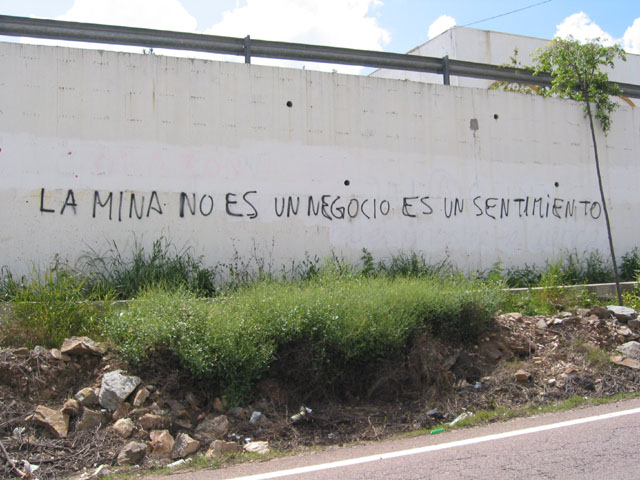 LA MINA NO ES UN NEGOCIO ES UN SENTIMIENTO